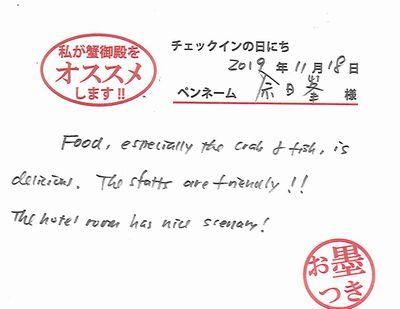 私が蟹御殿を
オススメ
します!!
チェックインの日にち
2019 年 11 月 18 日
ペンネーム 様
Food, especially the crab & fish, is
delicious. The staffs are friendly!!
The hotel room has nice scenary!
お墨
つき